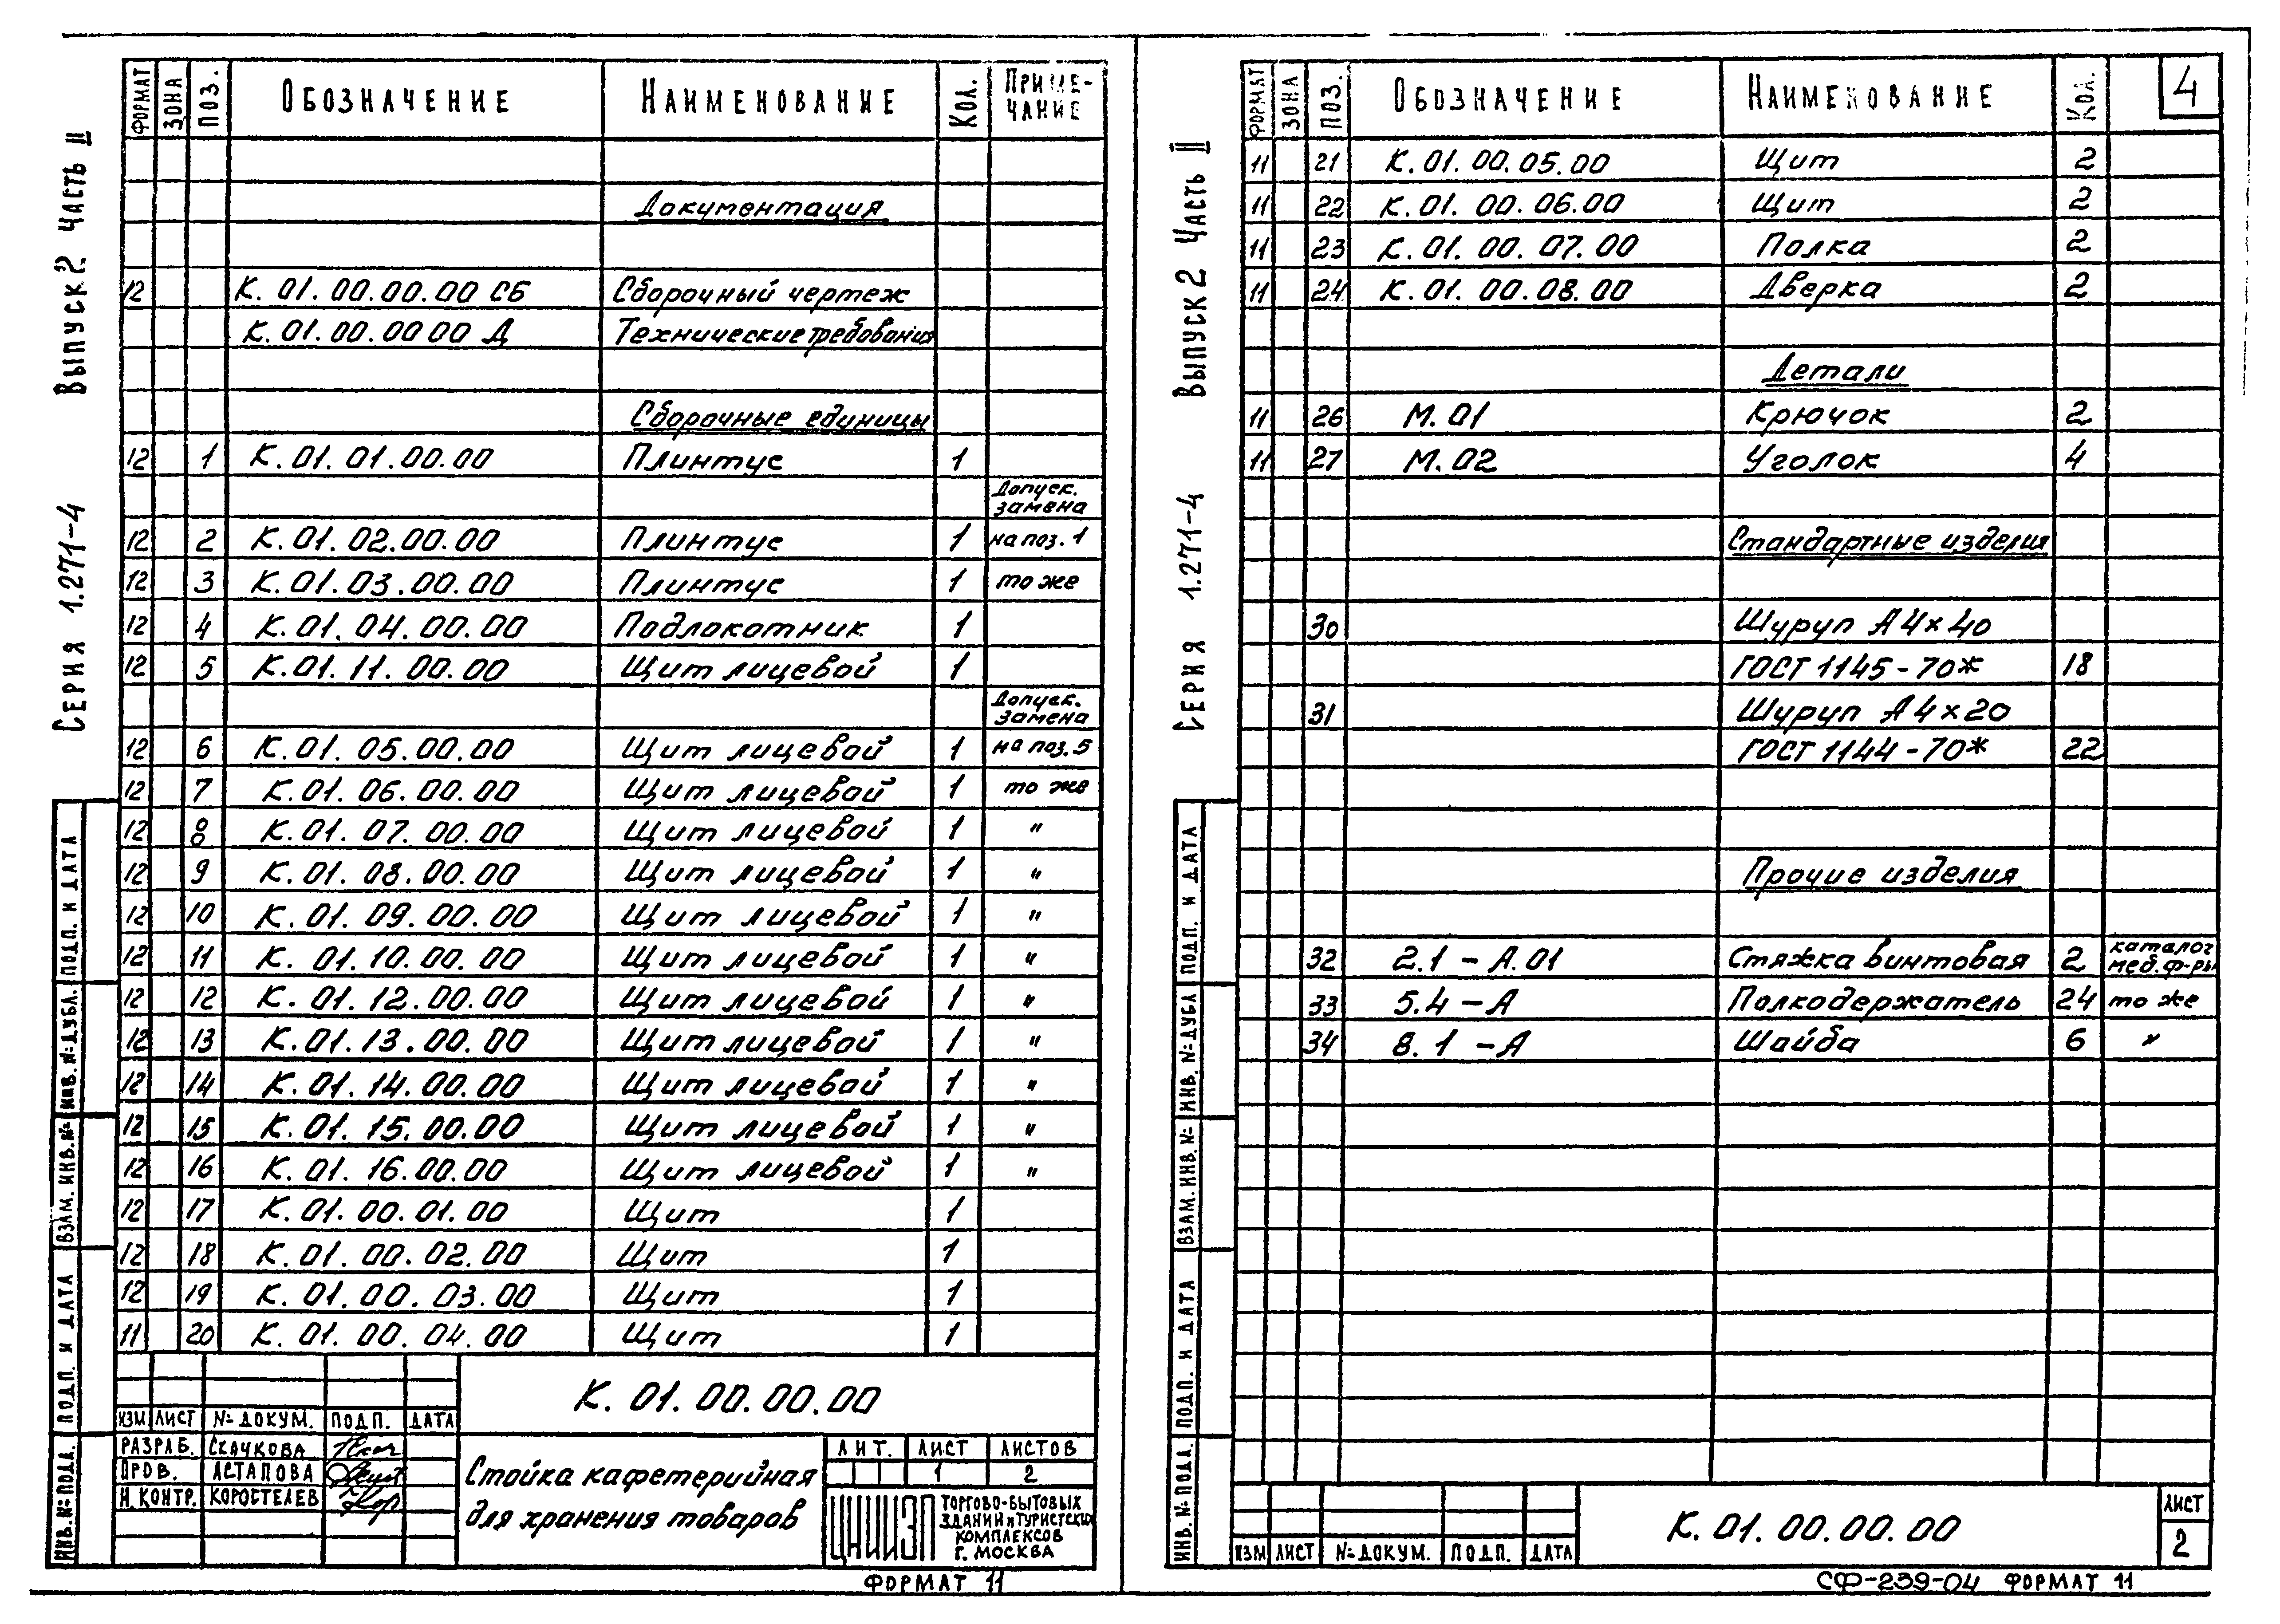 Серия 1.271-4 Выпуск 2 Часть II
ФОРМАТ ЗОНА ПОЗ. ОБОЗНАЧЕНИЕ НАИМЕНОВАНИЕ КОЛ. ПРИМЕ-
ЧАНИЕ
Документация
12 К.01.00.00.00 СБ Сборочный чертеж
К.01.00.00 00 Д Технические требования
Сборочные единицы
12 1 К.01.01.00.00 Плинтус 1
Допуск.
замена
12 2 К.01.02.00.00 Плинтус 1 на поз. 1
12 3 К.01.03.00.00 Плинтус 1 то же
12 4 К.01.04.00.00 Подлокотник 1
12 5 К.01.11.00.00 Щит лицевой 1
Допуск.
замена
12 6 К.01.05.00.00 Щит лицевой 1 на поз. 5
12 7 К.01.06.00.00 Щит лицевой 1 то же
12 8 К.01.07.00.00 Щит лицевой 1 "
12 9 К.01.08.00.00 Щит лицевой 1 "
12 10 К.01.09.00.00 Щит лицевой 1 "
12 11 К.01.10.00.00 Щит лицевой 1 "
12 12 К.01.12.00.00 Щит лицевой 1 "
12 13 К.01.13.00.00 Щит лицевой 1 "
12 14 К.01.14.00.00 Щит лицевой 1 "
12 15 К.01.15.00.00 Щит лицевой 1 "
12 16 К.01.16.00.00 Щит лицевой 1 "
12 17 К.01.00.01.00 Щит 1
12 18 К.01.00.02.00 Щит 1
12 19 К.01.00.03.00 Щит 1
11 20 К.01.00.04.00 Щит 1
ИНВ. № ПОДЛ. ПОДП. И ДАТА ВЗАМ. ИНВ. № ИНВ. № ДУБЛ. ПОДП. И ДАТА
К.01.00.00.00
ИЗМ ЛИСТ № ДОКУМ. ПОДП. ДАТА
РАЗРАБ. СКАЧКОВА
ПРОВ. АСТАПОВА
Н. КОНТР. КОРОСТЕЛЕВ
Стойка кафетерийная
для хранения товаров
ЛИТ. ЛИСТ ЛИСТОВ
1 2
ЦНИИЭП
ТОРГОВО-БЫТОВЫХ
ЗДАНИЙ И ТУРИСТСКИХ
КОМПЛЕКСОВ
Г. МОСКВА
ФОРМАТ 11
Серия 1.271-4 Выпуск 2 Часть II
4
ФОРМАТ ЗОНА ПОЗ. ОБОЗНАЧЕНИЕ НАИМЕНОВАНИЕ КОЛ.
11 21 К.01.00.05.00 Щит 2
11 22 К.01.00.06.00 Щит 2
11 23 К.01.00.07.00 Полка 2
11 24 К.01.00.08.00 Дверка 2
Детали
11 26 М.01 Крючок 2
11 27 М.02 Уголок 4
Стандартные изделия
30 Шуруп А 4×40
ГОСТ 1145-70* 18
31 Шуруп А 4×20
ГОСТ 1144-70* 22
Прочие изделия
32 2.1-А.01 Стяжка винтовая 2 каталог
меб. ф-ры
33 5.4-А Полкодержатель 24 то же
34 8.1-А Шайба 6 "
ИНВ. № ПОДЛ. ПОДП. И ДАТА ВЗАМ. ИНВ. № ИНВ. № ДУБЛ ПОДП. И ДАТА
ИЗМ ЛИСТ № ДОКУМ. ПОДП. ДАТА
К.01.00.00.00
ЛИСТ
2
СФ-239-04 ФОРМАТ 11